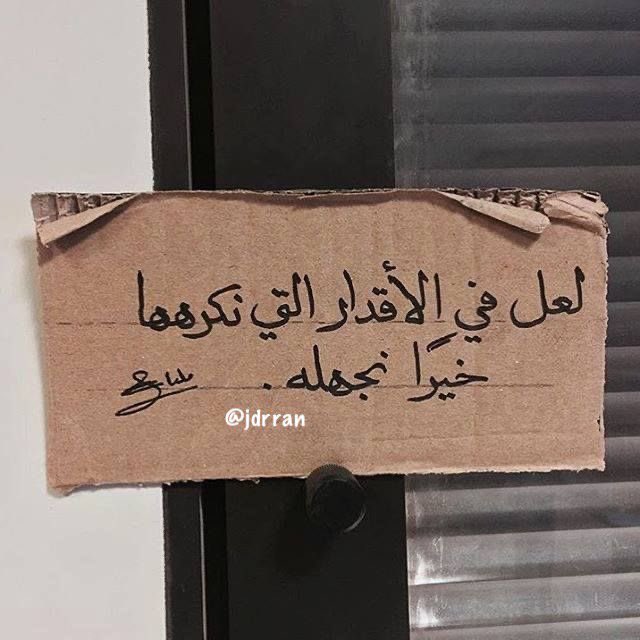 لعل في الأقدار التي نكرهها
خيرًا نجهله .
@jdrran